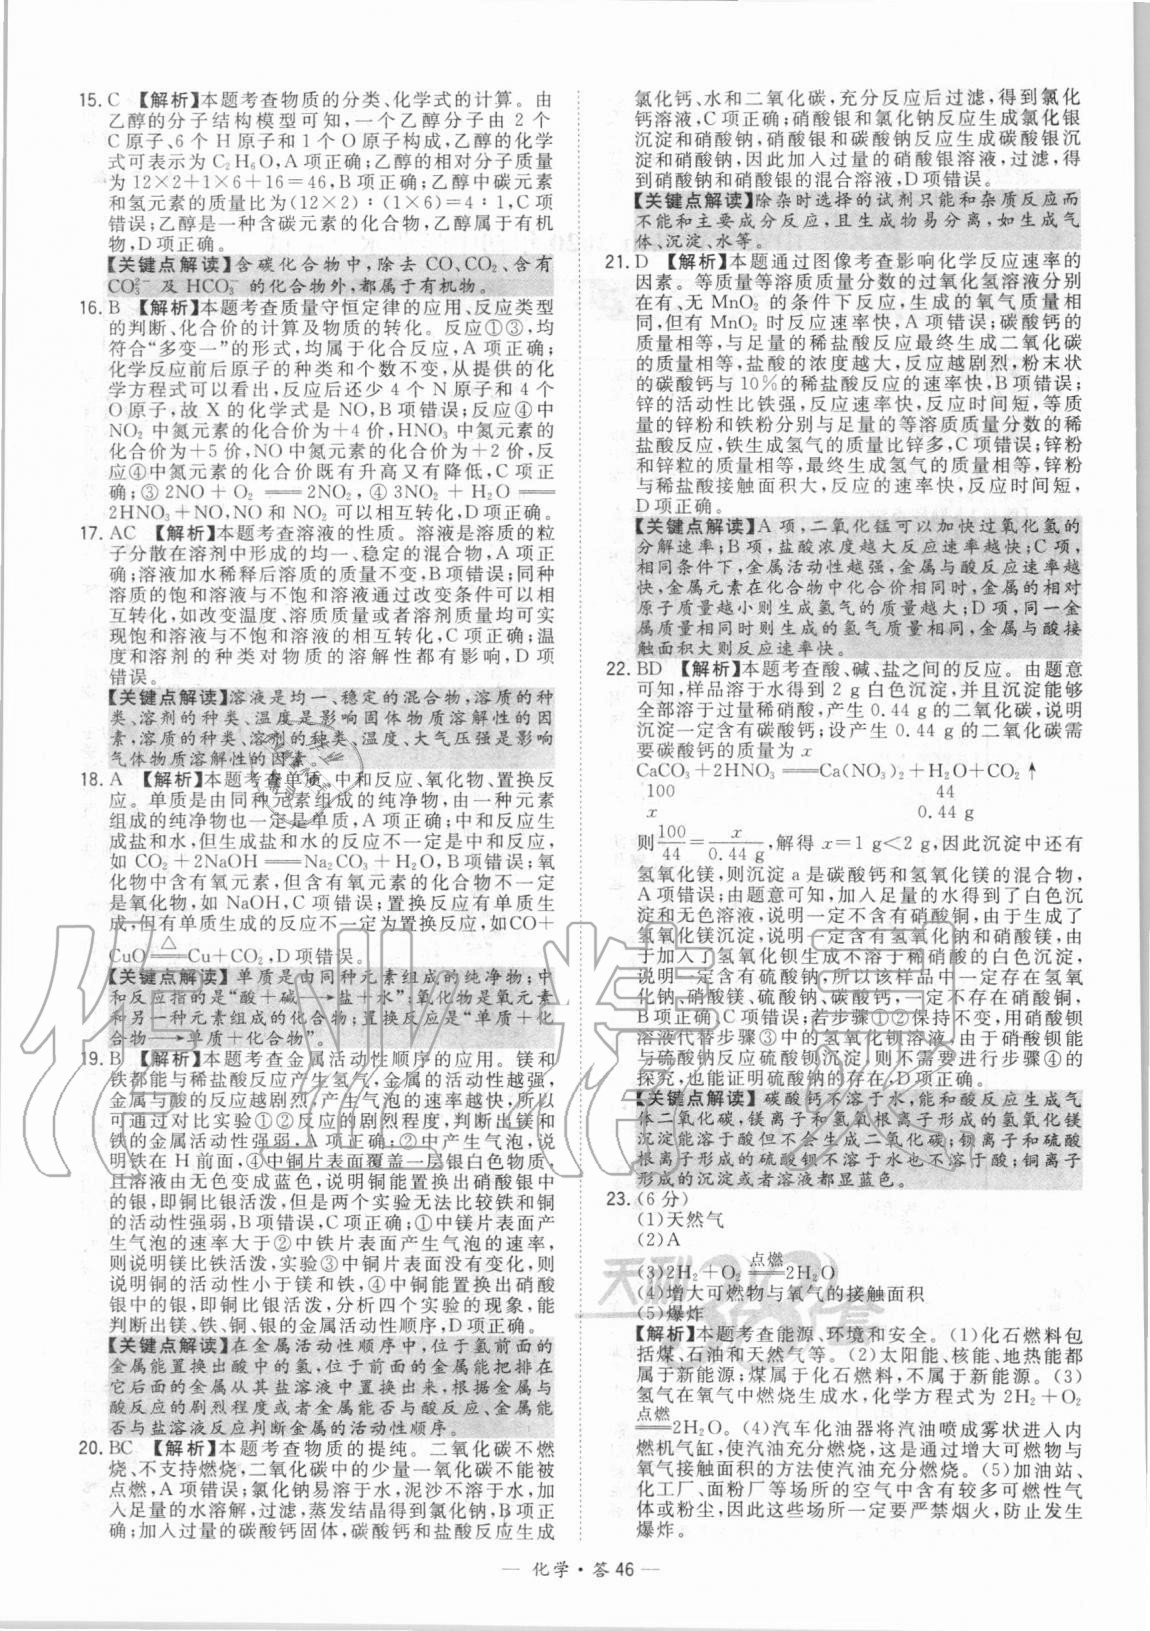 15. C 【解析】本题考查物质的分类、化学式的计算。由
乙醇的分子结构模型可知，一个乙醇分子由 2 个
C 原子、6 个 H 原子和 1 个 O 原子构成，乙醇的化学
式可表示为 C₂H₆O，A 项正确；乙醇的相对分子质量
为 12×2＋1×6＋16＝46，B 项正确；乙醇中碳元素
和氢元素的质量比为(12×2)∶(1×6)＝4∶1，C 项
错误；乙醇是一种含碳元素的化合物，乙醇属于有机
物，D 项正确。
【关键点解读】含碳化合物中，除去 CO、CO₂、含有
CO₃²⁻ 及 HCO₃⁻ 的化合物外，都属于有机物。
16. B 【解析】本题考查质量守恒定律的应用、反应类型
的判断、化合价的计算及物质的转化。反应①③，均
符合“多变一”的形式，均属于化合反应，A 项正确；
化学反应前后原子的种类和个数不变，从提供的化
学方程式可以看出，反应后还少 4 个 N 原子和 4 个
O 原子，故 X 的化学式是 NO，B 项错误；反应④中
NO₂ 中氮元素的化合价为＋4 价，HNO₃ 中氮元素的
化合价为＋5 价，NO 中氮元素的化合价为＋2 价，反
应④中氮元素的化合价既有升高又有降低，C 项正
确；③ 2NO＋O₂ ══ 2NO₂，④ 3NO₂＋H₂O ══
2HNO₃＋NO，NO 和 NO₂ 可以相互转化，D 项正确。
17. AC 【解析】本题考查溶液的性质。溶液是溶质的粒
子分散在溶剂中形成的均一、稳定的混合物，A 项正
确；溶液加水稀释后溶质的质量不变，B 项错误；同种
溶质的饱和溶液与不饱和溶液通过改变条件可以相
互转化，如改变温度、溶质质量或者溶剂质量均可实
现饱和溶液与不饱和溶液的相互转化，C 项正确；温
度和溶剂的种类对物质的溶解性都有影响，D 项
错误。
【关键点解读】溶液是均一、稳定的混合物，溶质的种
类、溶剂的种类、温度是影响固体物质溶解性的因
素，溶质的种类、溶剂的种类、温度、大气压强是影响
气体物质溶解性的因素。
18. A 【解析】本题考查单质、中和反应、氧化物、置换反
应。单质是由同种元素组成的纯净物，由一种元素
组成的纯净物也一定是单质，A 项正确；中和反应生
成盐和水，但生成盐和水的反应不一定是中和反应，
如 CO₂＋2NaOH ══ Na₂CO₃＋H₂O，B 项错误；氧
化物中含有氧元素，但含有氧元素的化合物不一定
是氧化物，如 NaOH，C 项错误；置换反应有单质生
成，但有单质生成的反应不一定为置换反应，如CO＋
CuO ═△═ Cu＋CO₂，D 项错误。
【关键点解读】单质是由同种元素组成的纯净物；中
和反应指的是“酸＋碱⟶盐＋水”；氧化物是氧元素
和另一种元素组成的化合物；置换反应是“单质＋化
合物⟶单质＋化合物”。
19. B 【解析】本题考查金属活动性顺序的应用。镁和
铁都能与稀盐酸反应产生氢气，金属的活动性越强，
金属与酸的反应越剧烈，产生气泡的速率越快，所以
可通过对比实验①②反应的剧烈程度，判断出镁和
铁的金属活动性强弱，A 项正确；②中产生气泡，说
明铁在 H 前面，④中铜片表面覆盖一层银白色物质，
且溶液由无色变成蓝色，说明铜能置换出硝酸银中
的银，即铜比银活泼，但是两个实验无法比较铁和铜
的活动性强弱，B 项错误，C 项正确；①中镁片表面产
生气泡的速率大于②中铁片表面产生气泡的速率，
则说明镁比铁活泼，实验③中铜片表面没有变化，则
说明铜的活动性小于镁和铁，④中铜能置换出硝酸
银中的银，即铜比银活泼，分析四个实验的现象，能
判断出镁、铁、铜、银的金属活动性顺序，D 项正确。
【关键点解读】在金属活动性顺序中，位于氢前面的
金属能置换出酸中的氢，位于前面的金属能把排在
它后面的金属从其盐溶液中置换出来，根据金属与
酸反应的剧烈程度或者金属能否与酸反应、金属能
否与盐溶液反应判断金属的活动性顺序。
20. BC 【解析】本题考查物质的提纯。二氧化碳不燃
烧、不支持燃烧，二氧化碳中的少量一氧化碳不能被
点燃，A 项错误；氯化钠易溶于水，泥沙不溶于水，加
入足量的水溶解，过滤，蒸发结晶得到氯化钠，B 项正
确；加入过量的碳酸钙固体，碳酸钙和盐酸反应生成
氯化钙、水和二氧化碳，充分反应后过滤，得到氯化
钙溶液，C 项正确；硝酸银和氯化钠反应生成氯化银
沉淀和硝酸钠，硝酸银和碳酸钠反应生成碳酸银沉
淀和硝酸钠，因此加入过量的硝酸银溶液，过滤，得
到硝酸钠和硝酸银的混合溶液，D 项错误。
【关键点解读】除杂时选择的试剂只能和杂质反应而
不能和主要成分反应，且生成物易分离，如生成气
体、沉淀、水等。
21. D 【解析】本题通过图像考查影响化学反应速率的
因素。等质量等溶质质量分数的过氧化氢溶液分别
在有、无 MnO₂ 的条件下反应，生成的氧气质量相
同，但有 MnO₂ 时反应速率快，A 项错误；碳酸钙的
质量相等，与足量的稀盐酸反应最终生成二氧化碳
的质量相等，盐酸的浓度越大，反应越剧烈，粉末状
的碳酸钙与 10％的稀盐酸反应的速率快，B 项错误；
锌的活动性比铁强，反应速率快，反应时间短，等质
量的锌粉和铁粉分别与足量的等溶质质量分数的稀
盐酸反应，铁生成氢气的质量比锌多，C 项错误；锌粉
和锌粒的质量相等，最终生成氢气的质量相等，锌粉
与稀盐酸接触面积大，反应的速率快，反应时间短，
D 项正确。
【关键点解读】A 项，二氧化锰可以加快过氧化氢的
分解速率；B 项，盐酸浓度越大反应速率越快；C 项，
相同条件下，金属活动性越强，金属与酸反应速率越
快，金属元素在化合物中化合价相同时，金属的相对
原子质量越小则生成氢气的质量越大；D 项，同一金
属质量相同时则生成的氢气质量相同，金属与酸接
触面积大则反应速率快。
22. BD 【解析】本题考查酸、碱、盐之间的反应。由题意
可知，样品溶于水得到 2 g 白色沉淀，并且沉淀能够
全部溶于过量稀硝酸，产生 0.44 g 的二氧化碳，说明
沉淀一定含有碳酸钙；设产生 0.44 g 的二氧化碳需
要碳酸钙的质量为 x
CaCO₃＋2HNO₃ ══ Ca(NO₃)₂＋H₂O＋CO₂↑
100 44
x 0.44 g
则 100/44＝x/0.44 g，解得 x＝1 g＜2 g，因此沉淀中还有
氢氧化镁，则沉淀 a 是碳酸钙和氢氧化镁的混合物，
A 项错误；由题意可知，加入足量的水得到了白色沉
淀和无色溶液，说明一定不含有硝酸铜，由于生成了
氢氧化镁沉淀，说明一定含有氢氧化钠和硝酸镁，由
于加入了氢氧化钡生成不溶于稀硝酸的白色沉淀，
说明一定含有硫酸钠，所以该样品中一定存在氢氧
化钠、硝酸镁、硫酸钠、碳酸钙，一定不存在硝酸铜，
B 项正确，C 项错误；若步骤①②保持不变，用硝酸钡
溶液代替步骤③中的氢氧化钡溶液，由于硝酸钡能
与硫酸钠反应硫酸钡沉淀，则不需要进行步骤④的
探究，也能证明硫酸钠的存在，D 项正确。
【关键点解读】碳酸钙不溶于水，能和酸反应生成气
体二氧化碳，镁离子和氢氧根离子形成的氢氧化镁
沉淀能溶于酸但不会生成二氧化碳；钡离子和硫酸
根离子形成的硫酸钡不溶于水也不溶于酸；铜离子
形成的沉淀或者溶液都显蓝色。
23. (6 分)
(1)天然气
(2)A
(3)2H₂＋O₂ ═点燃═ 2H₂O
(4)增大可燃物与氧气的接触面积
(5)爆炸
【解析】本题考查能源、环境和安全。(1)化石燃料包
括煤、石油和天然气等。(2)太阳能、核能、地热能都
属于新能源；煤属于化石燃料，不属于新能源。(3)
氢气在氧气中燃烧生成水，化学方程式为 2H₂＋O₂
═点燃═ 2H₂O。(4)汽车化油器将汽油喷成雾状进入内
燃机气缸，使汽油充分燃烧，这是通过增大可燃物与
氧气接触面积的方法使汽油充分燃烧。(5)加油站、
化工厂、面粉厂等场所的空气中含有较多可燃性气
体或粉尘，因此这些场所一定要严禁烟火，防止发生
爆炸。
— 化学·答 46 —
作业精灵
天利38套